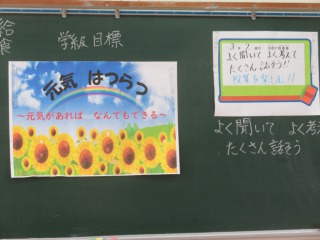 給食
学級目標
元気 はつらつ
～元気があれば なんでもできる～
よく聞いて よく考えて
たくさん話そう!!
授業を楽しむ!!
よく聞いて よく考
たくさん話そう